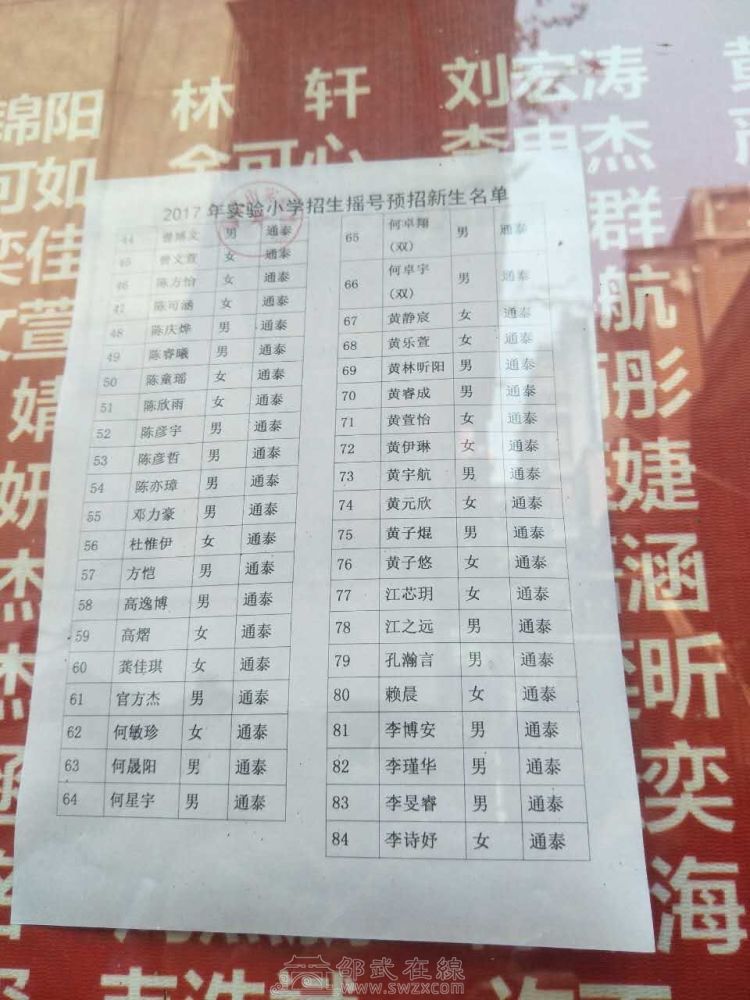 锦阳 林轩 刘宏涛
2017年实验小学招生摇号预招新生名单
44 曾博文 男 通泰
45 曾文萱 女 通泰
46 陈方怡 女 通泰
47 陈可涵 女 通泰
48 陈庆烨 男 通泰
49 陈睿曦 男 通泰
50 陈童瑶 女 通泰
51 陈欣雨 女 通泰
52 陈彦宇 男 通泰
53 陈彦哲 男 通泰
54 陈亦璋 男 通泰
55 邓力豪 男 通泰
56 杜惟伊 女 通泰
57 方恺 男 通泰
58 高逸博 男 通泰
59 高熠 女 通泰
60 龚佳琪 女 通泰
61 官方杰 男 通泰
62 何敏珍 女 通泰
63 何晟阳 男 通泰
64 何星宇 男 通泰
65 何卓翔（双） 男 通泰
66 何卓宇（双） 男 通泰
67 黄静宸 女 通泰
68 黄乐萱 女 通泰
69 黄林昕阳 男 通泰
70 黄睿成 男 通泰
71 黄萱怡 女 通泰
72 黄伊琳 女 通泰
73 黄宇航 男 通泰
74 黄元欣 女 通泰
75 黄子焜 男 通泰
76 黄子悠 女 通泰
77 江芯玥 女 通泰
78 江之远 男 通泰
79 孔瀚言 男 通泰
80 赖晨 女 通泰
81 李博安 男 通泰
82 李瑾华 男 通泰
83 李旻睿 男 通泰
84 李诗妤 女 通泰
可如
奕佳
文萱
婧
妍
杰
群
航
彤
婕
涵
昕
奕
海
邵武在線
www.swzx.com